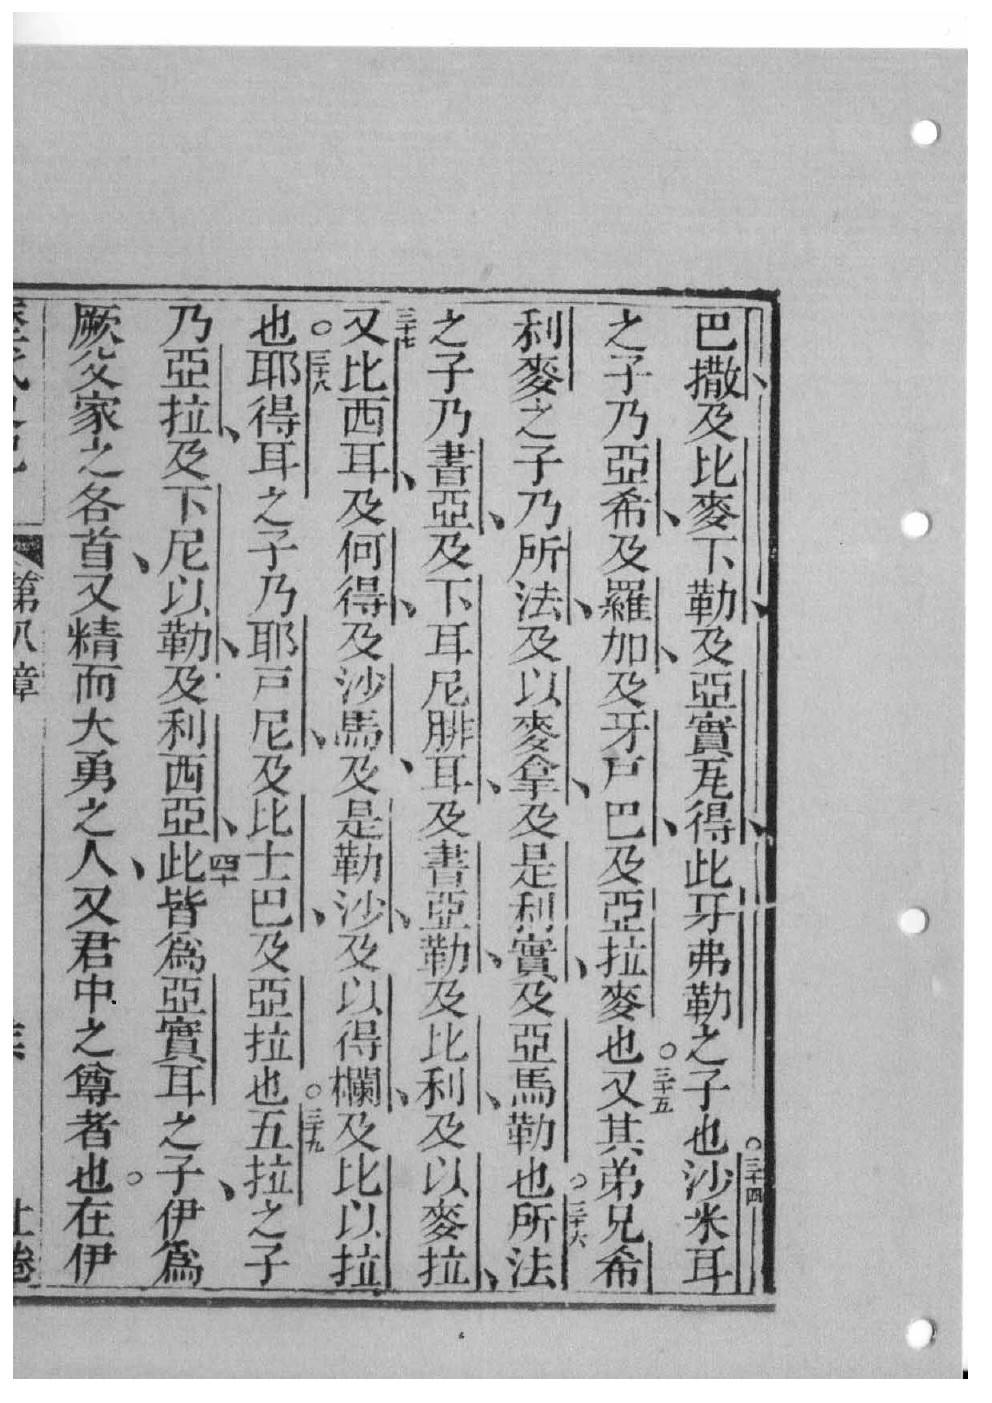 巴撒、及比麥下勒、及亞實厇得、此牙弗勒之子也。三十四沙米耳
之子乃亞希、及羅加、及牙戸巴、及亞拉麥也。三十五又其弟兄希
利麥之子乃所法、及以麥拿、及是利實、及亞馬勒也。三十六所法
之子乃書亞、及下耳尼腓耳、及書亞勒、及比利、及以麥拉、
三十七又比西耳、及何得、及沙馬、及是勒沙、及以得欄、及比以拉
也。三十八耶得耳之子乃耶戸尼、及比士巴、及亞拉也。三十九五拉之子
乃亞拉、及下尼以勒、及利西亞、四十此皆爲亞實耳之子、伊爲
厥父家之各首、又精而大勇之人、又君中之尊者也。在伊
第八章